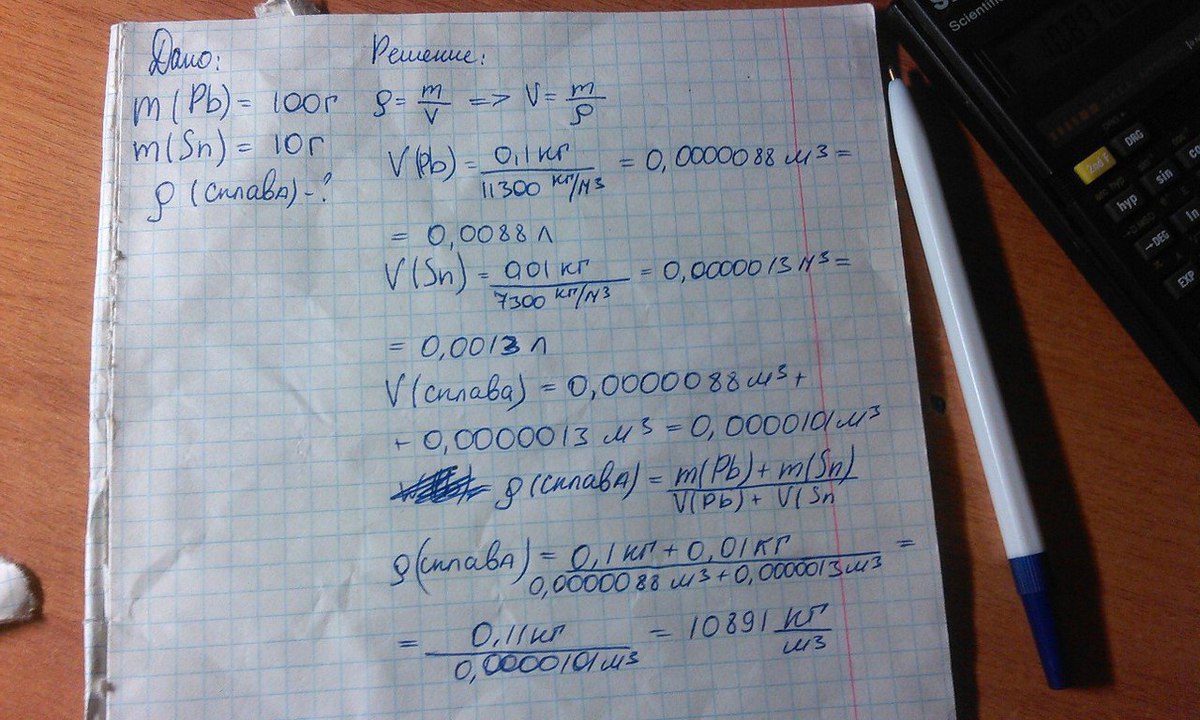 Дано:
m(Pb) = 100г
m(Sn) = 10г
ρ(сплава) - ?
Решение:
ρ = m/V => V = m/ρ
V(Pb) = 0,1 кг / 11300 кг/м³ = 0,0000088 м³ =
= 0,0088 л
V(Sn) = 0,01 кг / 7300 кг/м³ = 0,0000013 м³ =
= 0,0013 л
V(сплава) = 0,0000088 м³ +
+ 0,0000013 м³ = 0,0000101 м³
ρ(сплава) = m(Pb) + m(Sn) / V(Pb) + V(Sn
ρ(сплава) = 0,1 кг + 0,01 кг / 0,0000088 м³ + 0,0000013 м³ =
= 0,11 кг / 0,0000101 м³ = 10891 кг/м³
Scientifi
DRG
2nd F
hyp
sin
→DEG
EXP